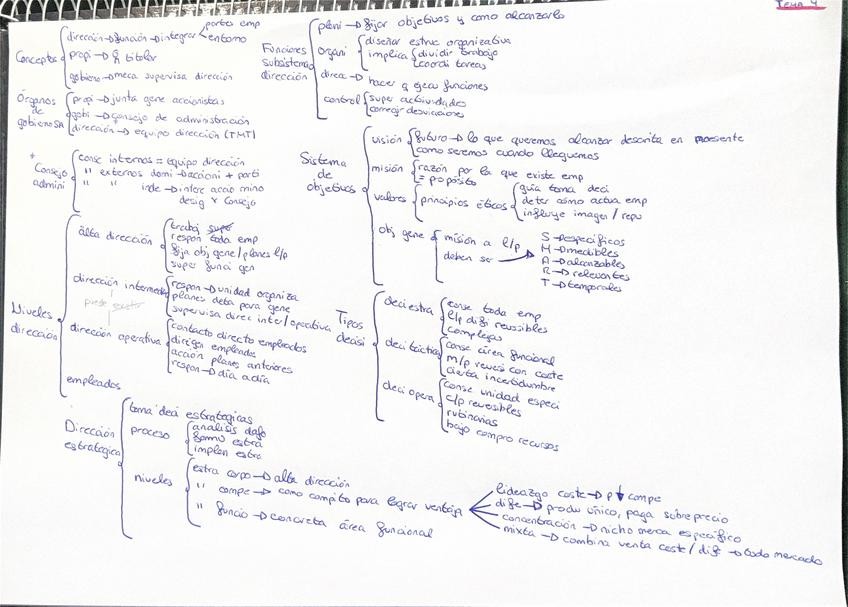 Tema 4
Conceptos
dirección → función → integrar
partes emp
entorno
propi → titular
gobierno → meca supervisa dirección
Órganos de gobierno SA
propi → junta gene accionistas
gobi → consejo de administración
dirección → equipo dirección (TMT)
* Consejo admini
conse internos = equipo dirección
" externos domi → accioni + parti
" " inde → interc accio mino
desig x Consejo
Niveles dirección
alta dirección
trabaj supe
respon toda emp
fija obj gene/planes l/p
super funci gen
dirección intermedia
respon → unidad organiza
planes deta para gene
supervisa direc inter/operativa
puede existir
dirección operativa
contacto directo empleados
dirigen empleados
acción planes anteriores
respon → día a día
empleados
Dirección estrategica
toma deci estrategicas
proceso
analisis dafo
formu estra
implan estra
niveles
estra corpo → alta dirección
" compe → como compito para lograr ventaja
liderazgo coste → p ↓ compe
dife → produ único, paga sobreprecio
concentración → nicho merca especifico
mixta → combina venta coste/dife → todo mercado
" funcio → concreta área funcional
Funciones Subsistema dirección
plani → fijar objetivos y como alcanzarlo
organi
diseñar estruc organizativa
implica
dividir trabajo
coordi tareas
direc → hacer q ejecu funciones
control
super actividades
corregir desviaciones
Sistema de objetivos
visión
futuro → lo que queremos alcanzar descrita en presente
como seremos cuando lleguemos
misión
razón por la que existe emp
= propósito
valores
principios éticos
guía toma deci
deter cómo actua emp
influye imagen/repu
obj gene
misión a l/p
deben ser →
S → especificos
M → medibles
A → alcanzables
R → relevantes
T → temporales
Tipos decisi
deci estra
conse toda emp
l/p difi reversibles
complejas
deci táctica
conse área funcional
m/p reversi con coste
cierta incertidumbre
deci opera
conse unidad especi
c/p reversibles
rutinarias
bajo compro recursos